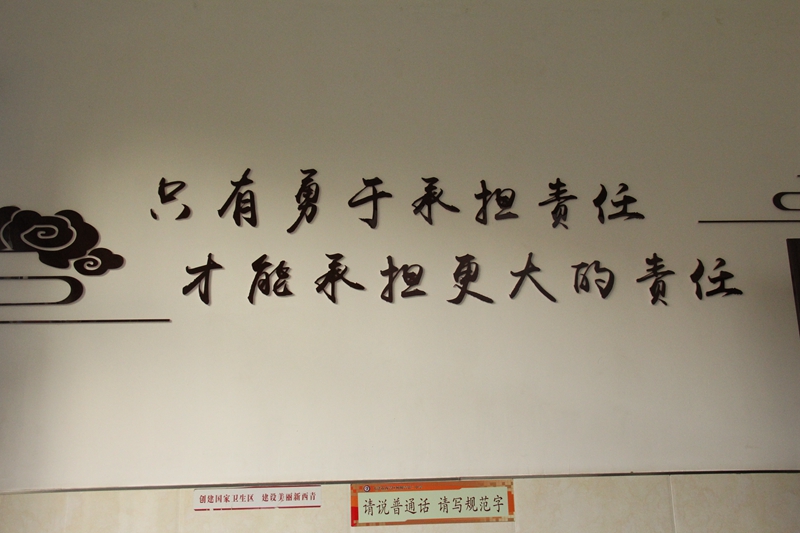 只有勇于承担责任
才能承担更大的责任
创建国家卫生区 建设美丽新西青
请说普通话 请写规范字